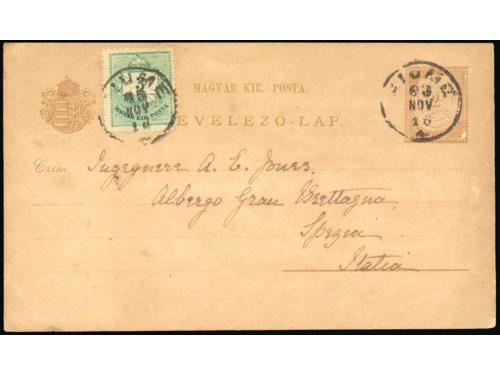 MAGYAR KIR. POSTA.
LEVELEZŐ-LAP.
FIUME
93
NOV
16
FIUME
93
NOV
16
Czim
Ingegnere A. E. Jones
Albergo Gran Brettagna
Spezia
Italia